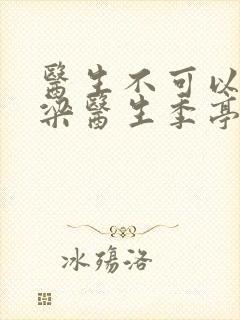 醫生不可以
梁醫生季亭
冰殤洛